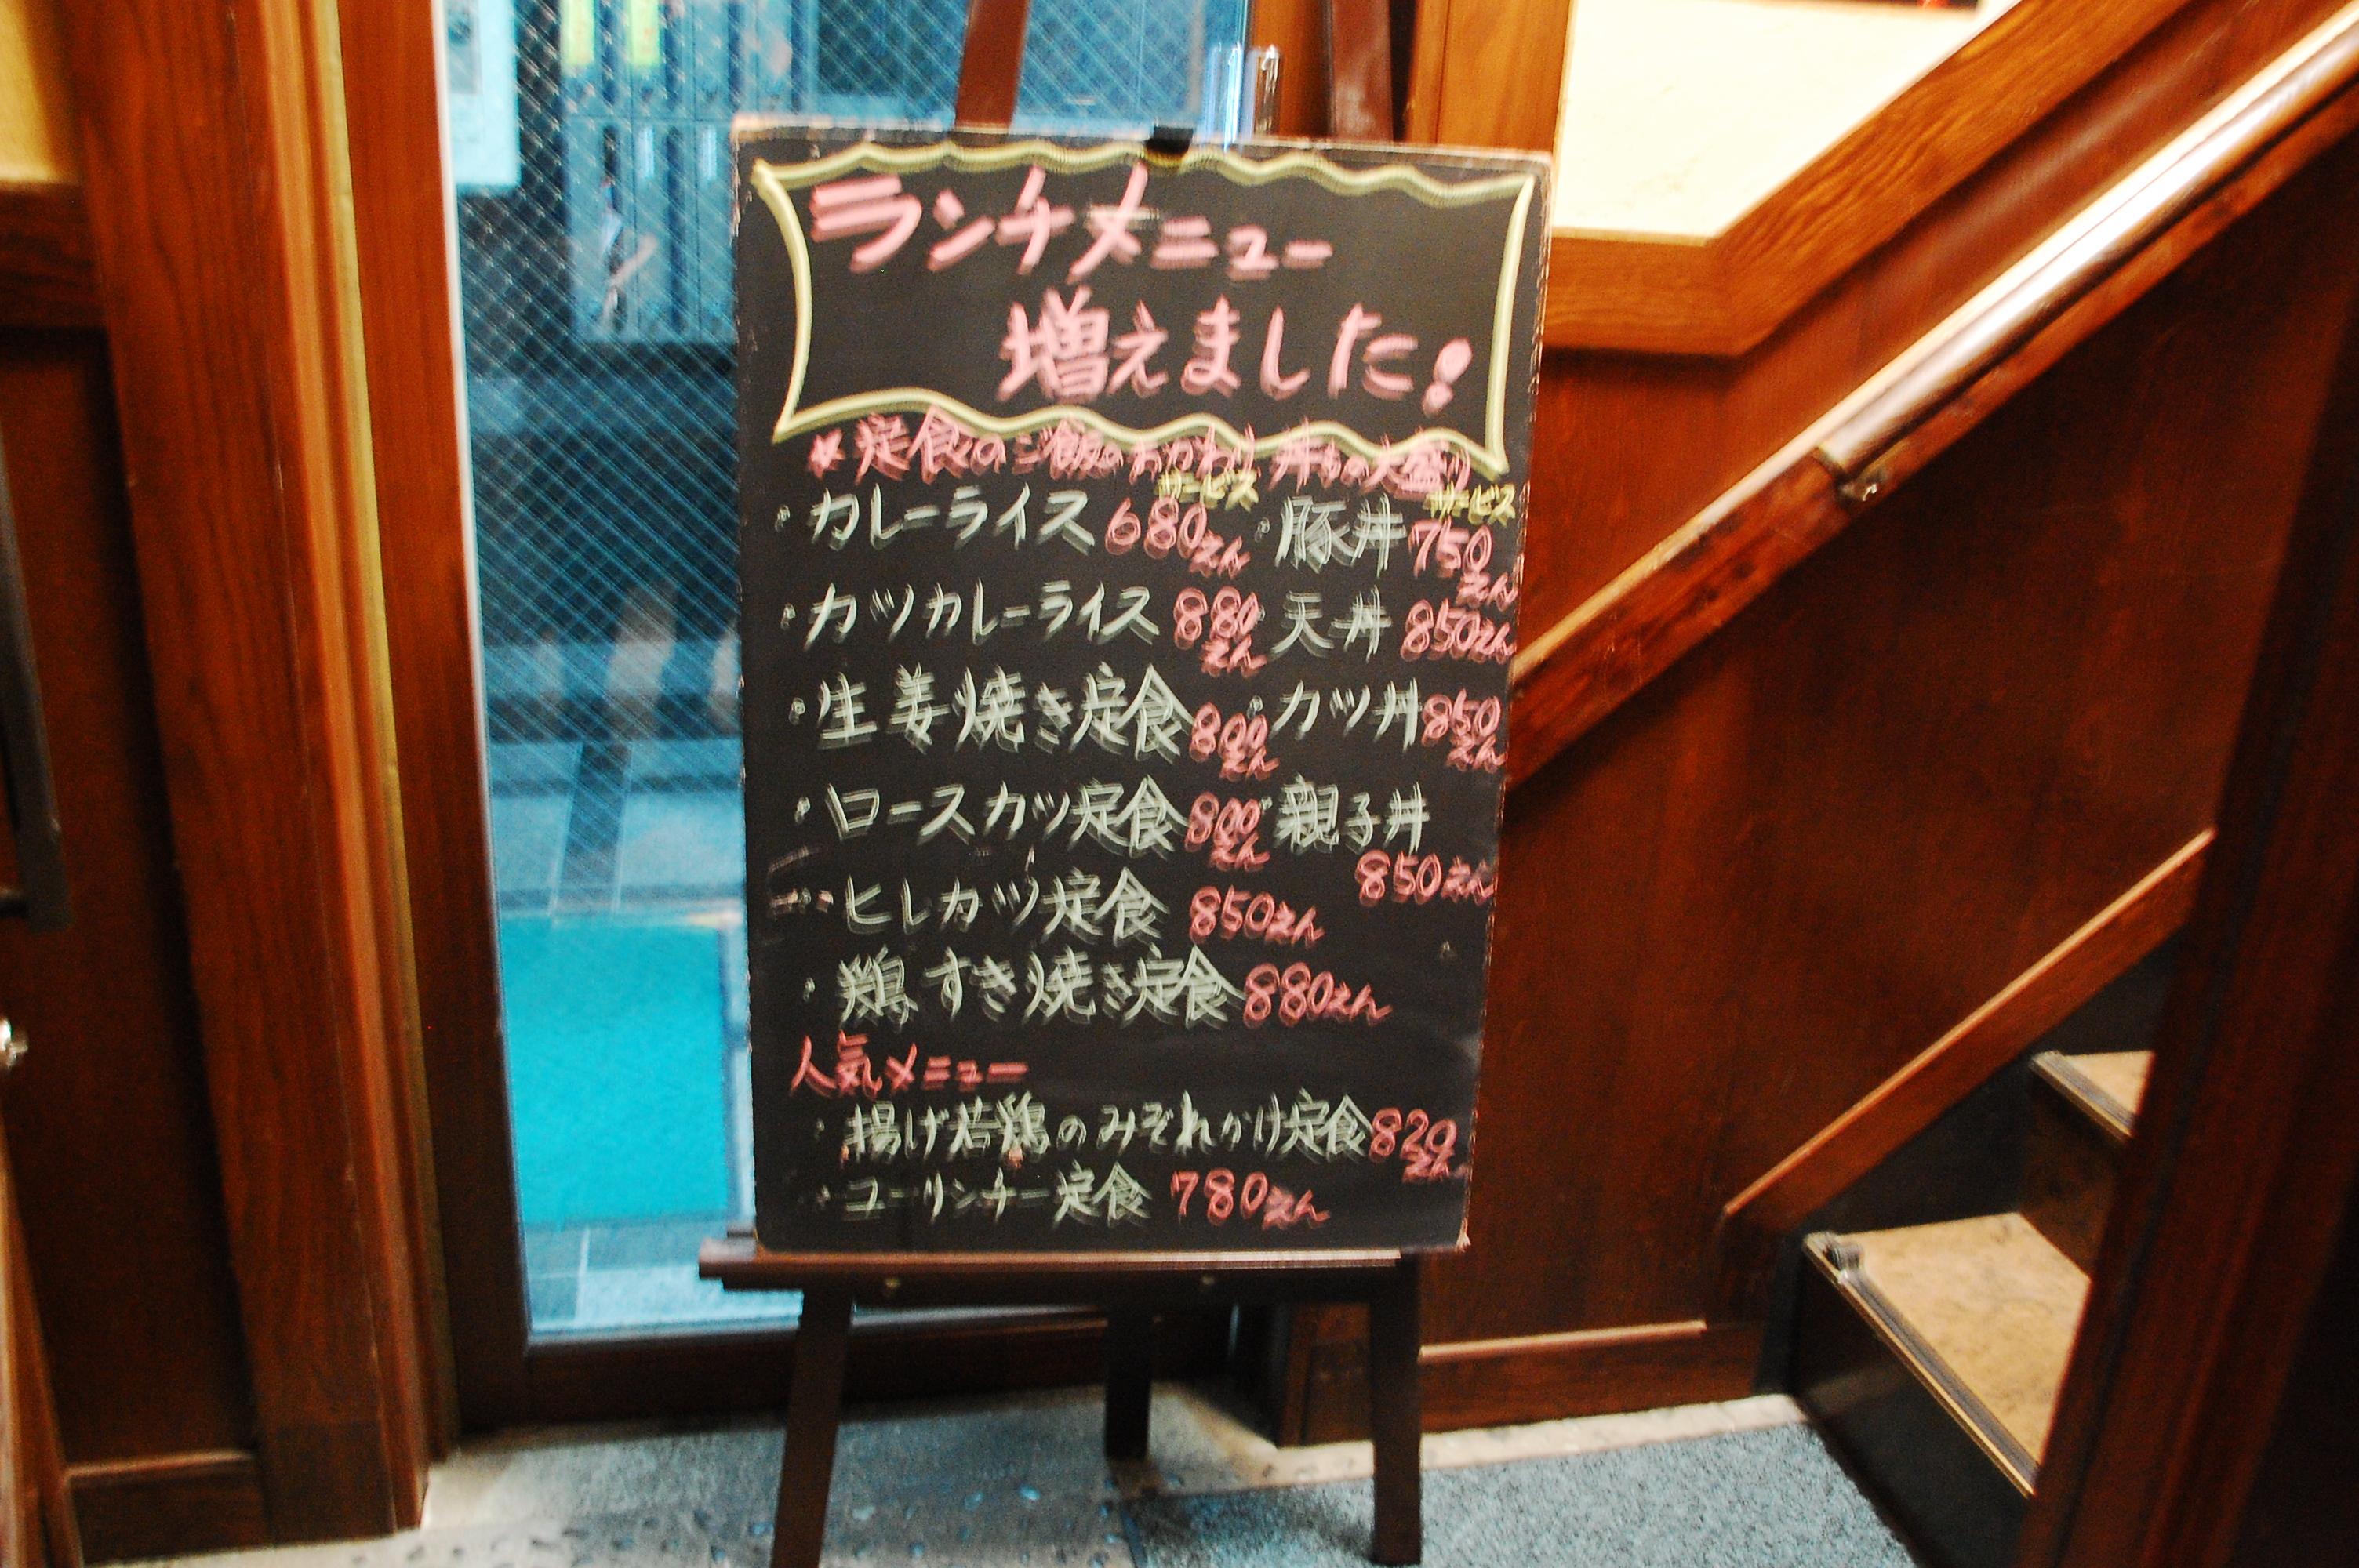 ランチメニュー
増えました!
★定食のご飯のおかわり 丼もの大盛り
サービス サービス
・カレーライス 680えん ・豚丼 750えん
・カツカレーライス 880えん ・天丼 850えん
・生姜焼き定食 800えん ・カツ丼 850えん
・ロースカツ定食 800えん ・親子丼
850えん
・ヒレカツ定食 850えん
・鶏すき焼き定食 880えん
人気メニュー
・揚げ若鶏のみぞれかけ定食 820えん
・ユーリンチー定食 780えん